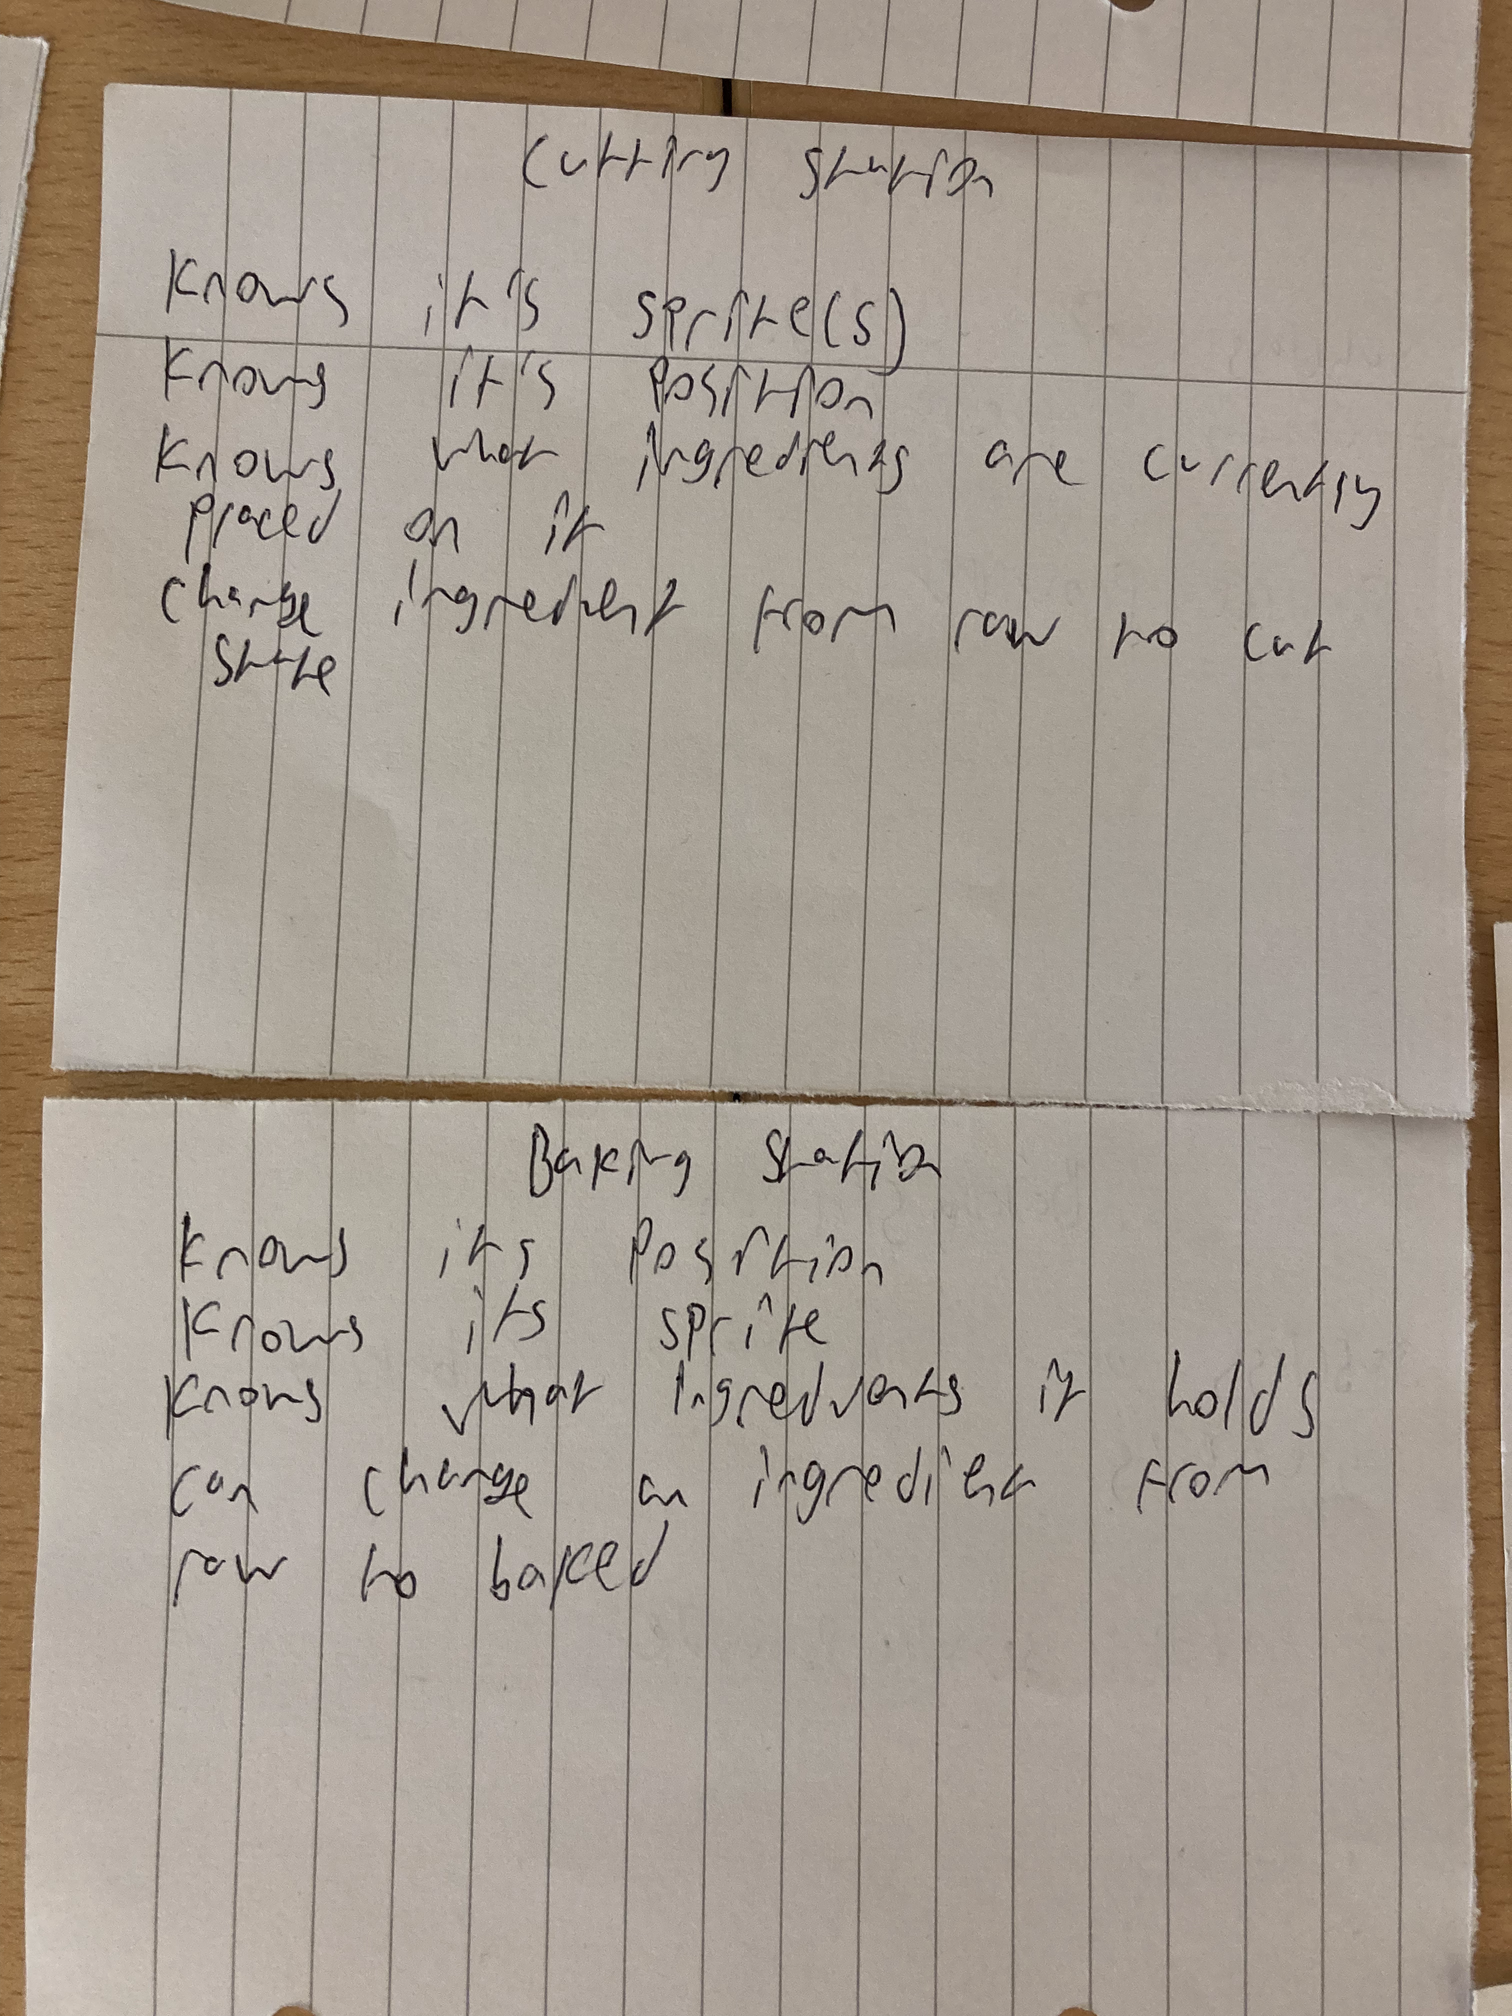 Cutting Station
Knows it's sprite(s)
Knows it's position
Knows what ingredients are currently
placed on it
Change ingredient from raw to cut
State
Baking Station
Knows its position
Knows its sprite
Knows what ingredients it holds
can change an ingredient from
raw to baked